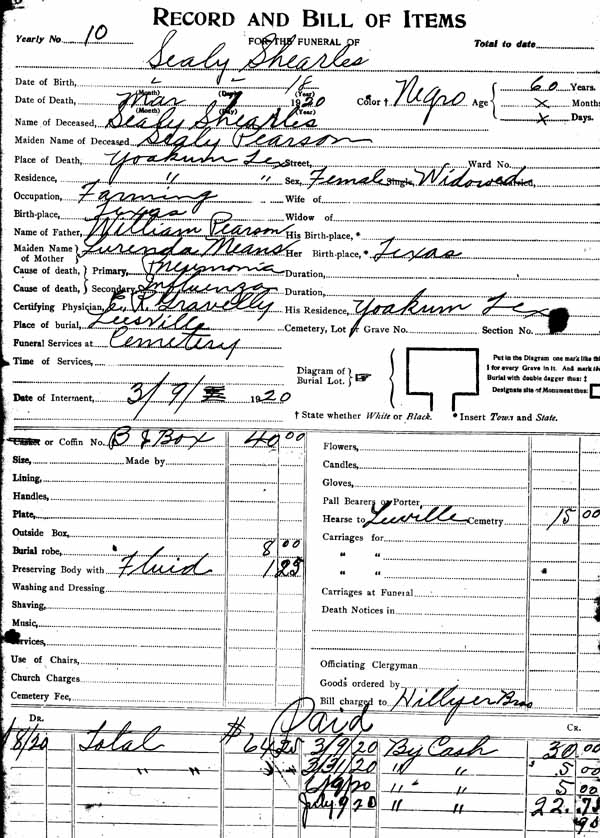 RECORD AND BILL OF ITEMS
Yearly No 10 FOR THE FUNERAL OF Total to date
Sealy Shearles
Date of Birth, " " 18 Years.
(Month) (Day) (Year)
Date of Death, Mar 1920 Color † Negro Age 60 Years.
(Month) (Day) (Year) x Months
Name of Deceased, Sealy Shearles x Days.
Maiden Name of Deceased Sealy Pearson
Place of Death, Yoakum Tex Street, Ward No.
Residence, " " Sex, Female Single, Widowed Married,
Occupation, Farming Wife of
Birth-place, Texas Widow of
Name of Father, William Pearson His Birth-place, *
Maiden Name of Mother Lurenda Means Her Birth-place, * Texas
Cause of death, Primary, Pneymonia Duration,
Cause of death, Secondary Influenza Duration,
Certifying Physician, E. R. Gravelly His Residence, Yoakum Tex
Place of burial, Leesville Cemetery, Lot or Grave No. Section No.
Funeral Services at Cemetery
Time of Services,
Diagram of Burial Lot. ☞
Put in the Diagram one mark like this
I for every Grave in it. And mark the
Burial with double dagger thus: ‡
Designate site of Monument thus:
Date of Interment, 3/9/ 1920
† State whether White or Black. * Insert Town and State.
Casket or Coffin No. B & Box 40 00
Size, Made by
Lining,
Handles,
Plate,
Outside Box,
Burial robe, 8 00
Preserving Body with Fluid 1 25
Washing and Dressing
Shaving,
Music,
Services,
Use of Chairs,
Church Charges
Cemetery Fee,
Flowers,
Candles,
Gloves,
Pall Bearers or Porter
Hearse to Leeville Cemetry 15 00
Carriages for
" "
" "
Carriages at Funeral
Death Notices in
Officiating Clergyman
Goods ordered by
Bill charged to Hillyer Bros
Paid
DR. CR.
/8/20 Total $ 64 25 3/9/20 By Cash 30 00
" " 3/31/20 " " 5 00
" " 5 00
July 9 20 " " 22.75